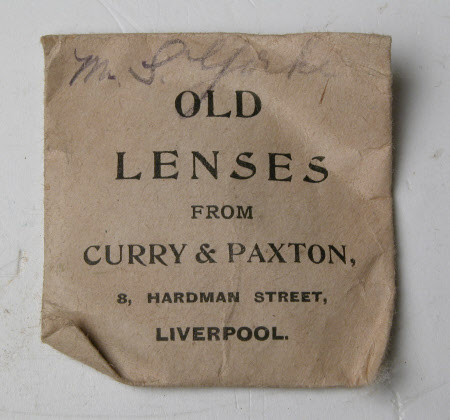 OLD
LENSES
FROM
CURRY & PAXTON,
8, HARDMAN STREET,
LIVERPOOL.